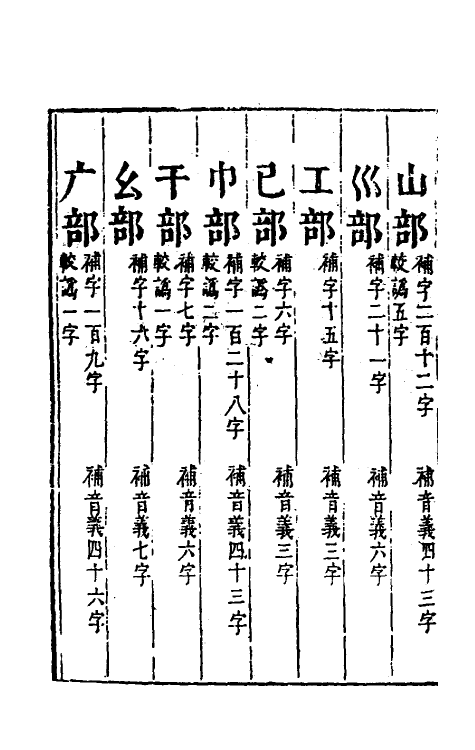 山部
補字二百十二字
較譌五字
補音義四十三字
巛部
補字二十一字
補音義六字
工部
補字十五字
補音義三字
已部
補字六字
較譌二字
補音義三字
巾部
補字一百二十八字
較譌二字
補音義四十三字
干部
補字七字
較譌一字
補音義六字
幺部
補字十六字
補音義七字
广部
補字一百九字
較譌一字
補音義四十六字